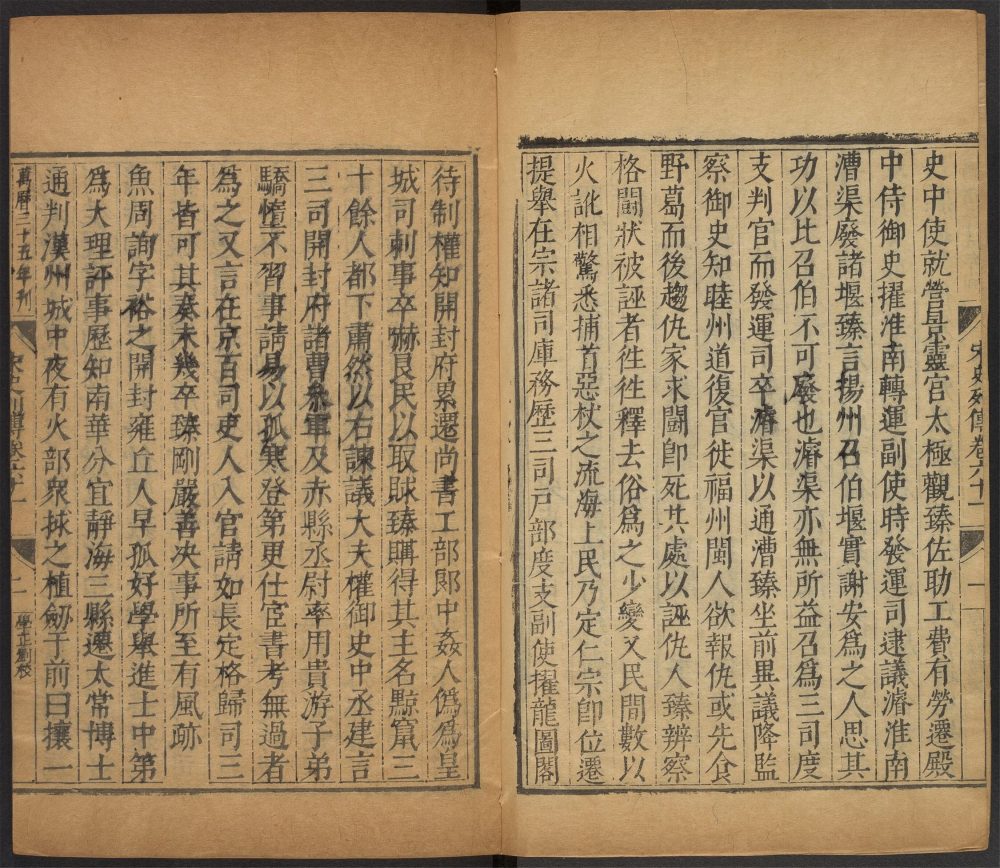 宋史列傳卷六十一
一
史中使就營景靈宮太極觀臻佐助工費有勞遷殿
中侍御史擢淮南轉運副使時發運司建議濬淮南
漕渠發諸堰臻言揚州召伯堰實謝安爲之人思其
功以比召伯不可廢也濬渠亦無所益召爲三司度
支判官而發運司卒濬渠以通漕臻坐前異議降監
察御史知睦州道復官徙福州閩人欲報仇或先食
野葛而後趨仇家求鬬卽死其處以誣仇人臻辨察
格鬬狀被誣者往往釋去俗爲之少變又民間數以
火訛相驚悉捕首惡杖之流海上民乃定仁宗卽位遷
提舉在宗諸司庫務歷三司戶部度支副使擢龍圖閣
待制權知開封府累遷尚書工部郎中姦人僞爲皇
城司刺事卒嚇良民以取賕臻購得其主名黥竄三
十餘人都下肅然以右諫議大夫權御史中丞建言
三司開封府諸曹參軍及赤縣丞尉率用貴游子弟
驕惰不習事請易以孤寒登第更仕宦書考無過者
爲之又言在京百司吏人入官請如長定格歸司三
年皆可其奏未幾卒臻剛嚴善決事所至有風跡
魚周詢字裕之開封雍丘人早孤好學舉進士中第
爲大理評事歷知南華分宜靜海三縣遷太常博士
通判漢州城中夜有火部衆捄之植劒于前曰攘一
萬曆二十五年刊